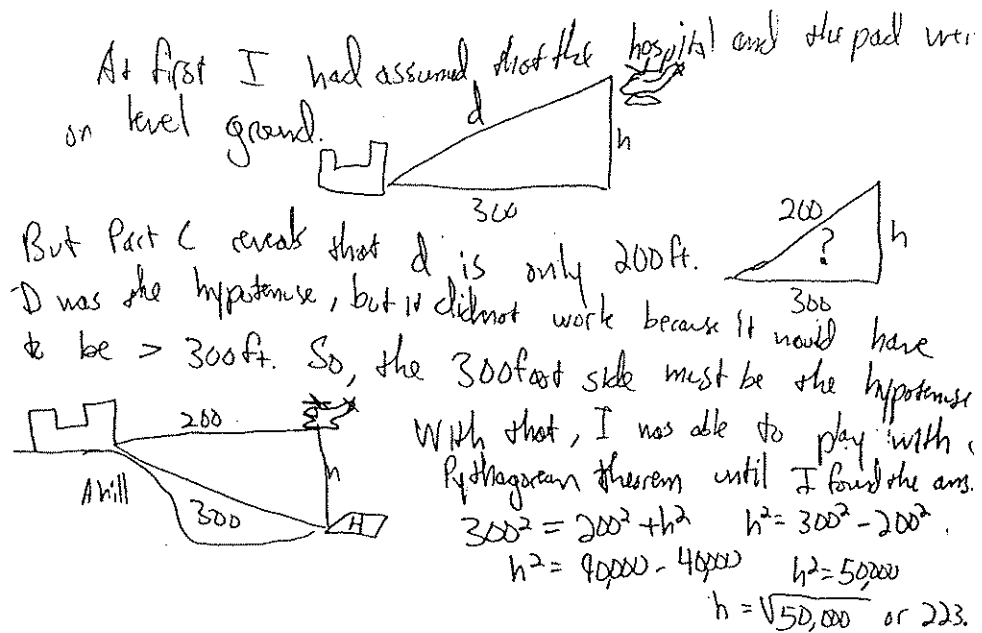 At first I had assumed that the hospital and the pad wer
on level ground.
d
h
300
200
?
h
300
But Part C reveals that d is only 200ft.
D was the hypotenuse, but it did not work because it would have
to be > 300ft. So, the 300foot side must be the hypotenuse
200
h
A hill
300
H
With that, I was able to play with
Pythagorean theorem until I found the ans.
300² = 200² + h² h² = 300² - 200².
h² = 90,000 - 40,000 h² = 50,000
h = √50,000 or 223.